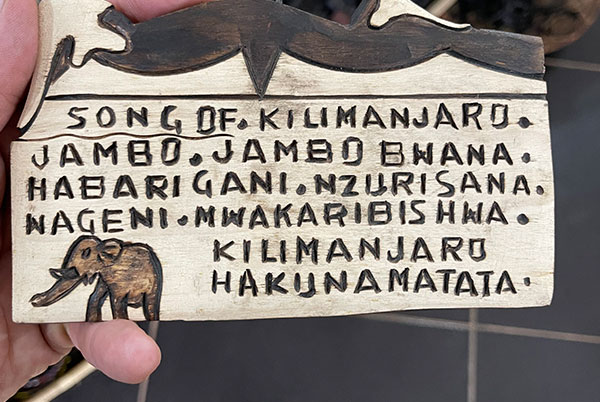 SONG OF. KILIMANJARO.
JAMBO. JAMBO BWANA.
HABARI GANI. NZURI SANA.
WAGENI. MWAKARIBISHWA.
KILIMANJARO
HAKUNA MATATA.